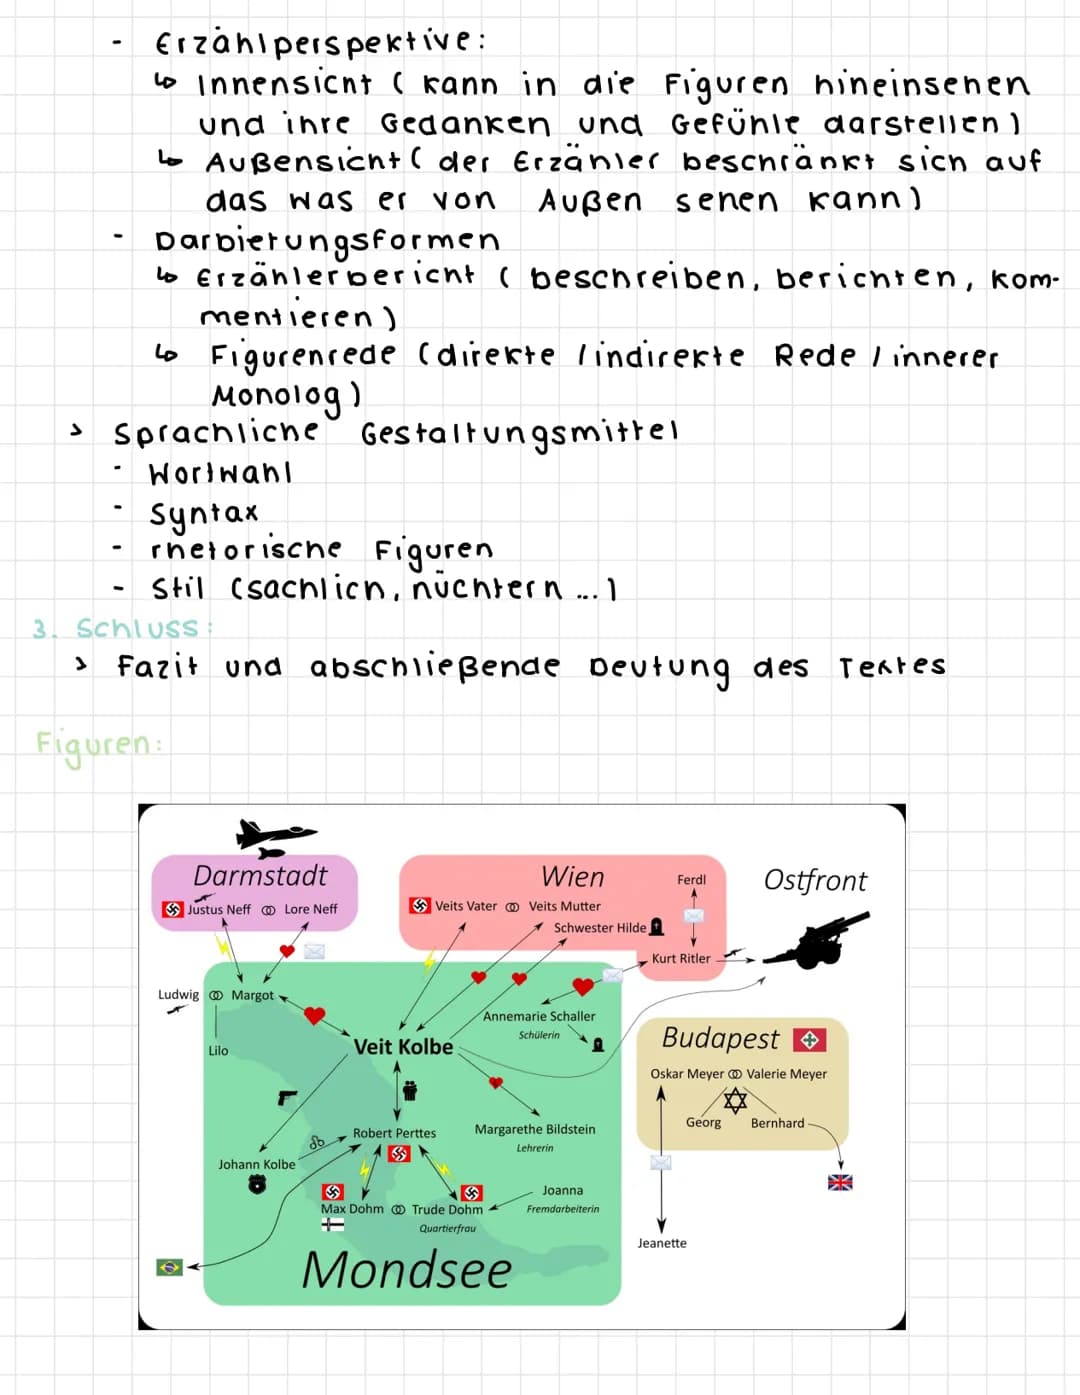 - Erzählperspektive:
↳ Innensicht ( kann in die Figuren hineinsehen
und ihre Gedanken und Gefühle darstellen)
↳ Außensicht ( der Erzähler beschränkt sich auf
das was er von Außen sehen kann)
- Darbietungsformen
↳ Erzählerbericht ( beschreiben, berichten, kom-
mentieren)
↳ Figurenrede (direkte / indirekte Rede / innerer
Monolog)
> Sprachliche Gestaltungsmittel
- Wortwahl
- Syntax
- rhetorische Figuren
- Stil (sachlich, nüchtern ...)
3. Schluss:
> Fazit und abschließende Deutung des Textes
Figuren:
Darmstadt
Justus Neff
Lore Neff
Wien
Veits Vater
Veits Mutter
Schwester Hilde
Ferdl
Kurt Ritler
Ostfront
Ludwig
Margot
Lilo
Veit Kolbe
Annemarie Schaller
Schülerin
Budapest
Oskar Meyer
Valerie Meyer
Georg
Bernhard
Jeanette
Robert Perttes
Margarethe Bildstein
Lehrerin
Johann Kolbe
Max Dohm
Trude Dohm
Quartierfrau
Joanna
Fremdarbeiterin
Mondsee